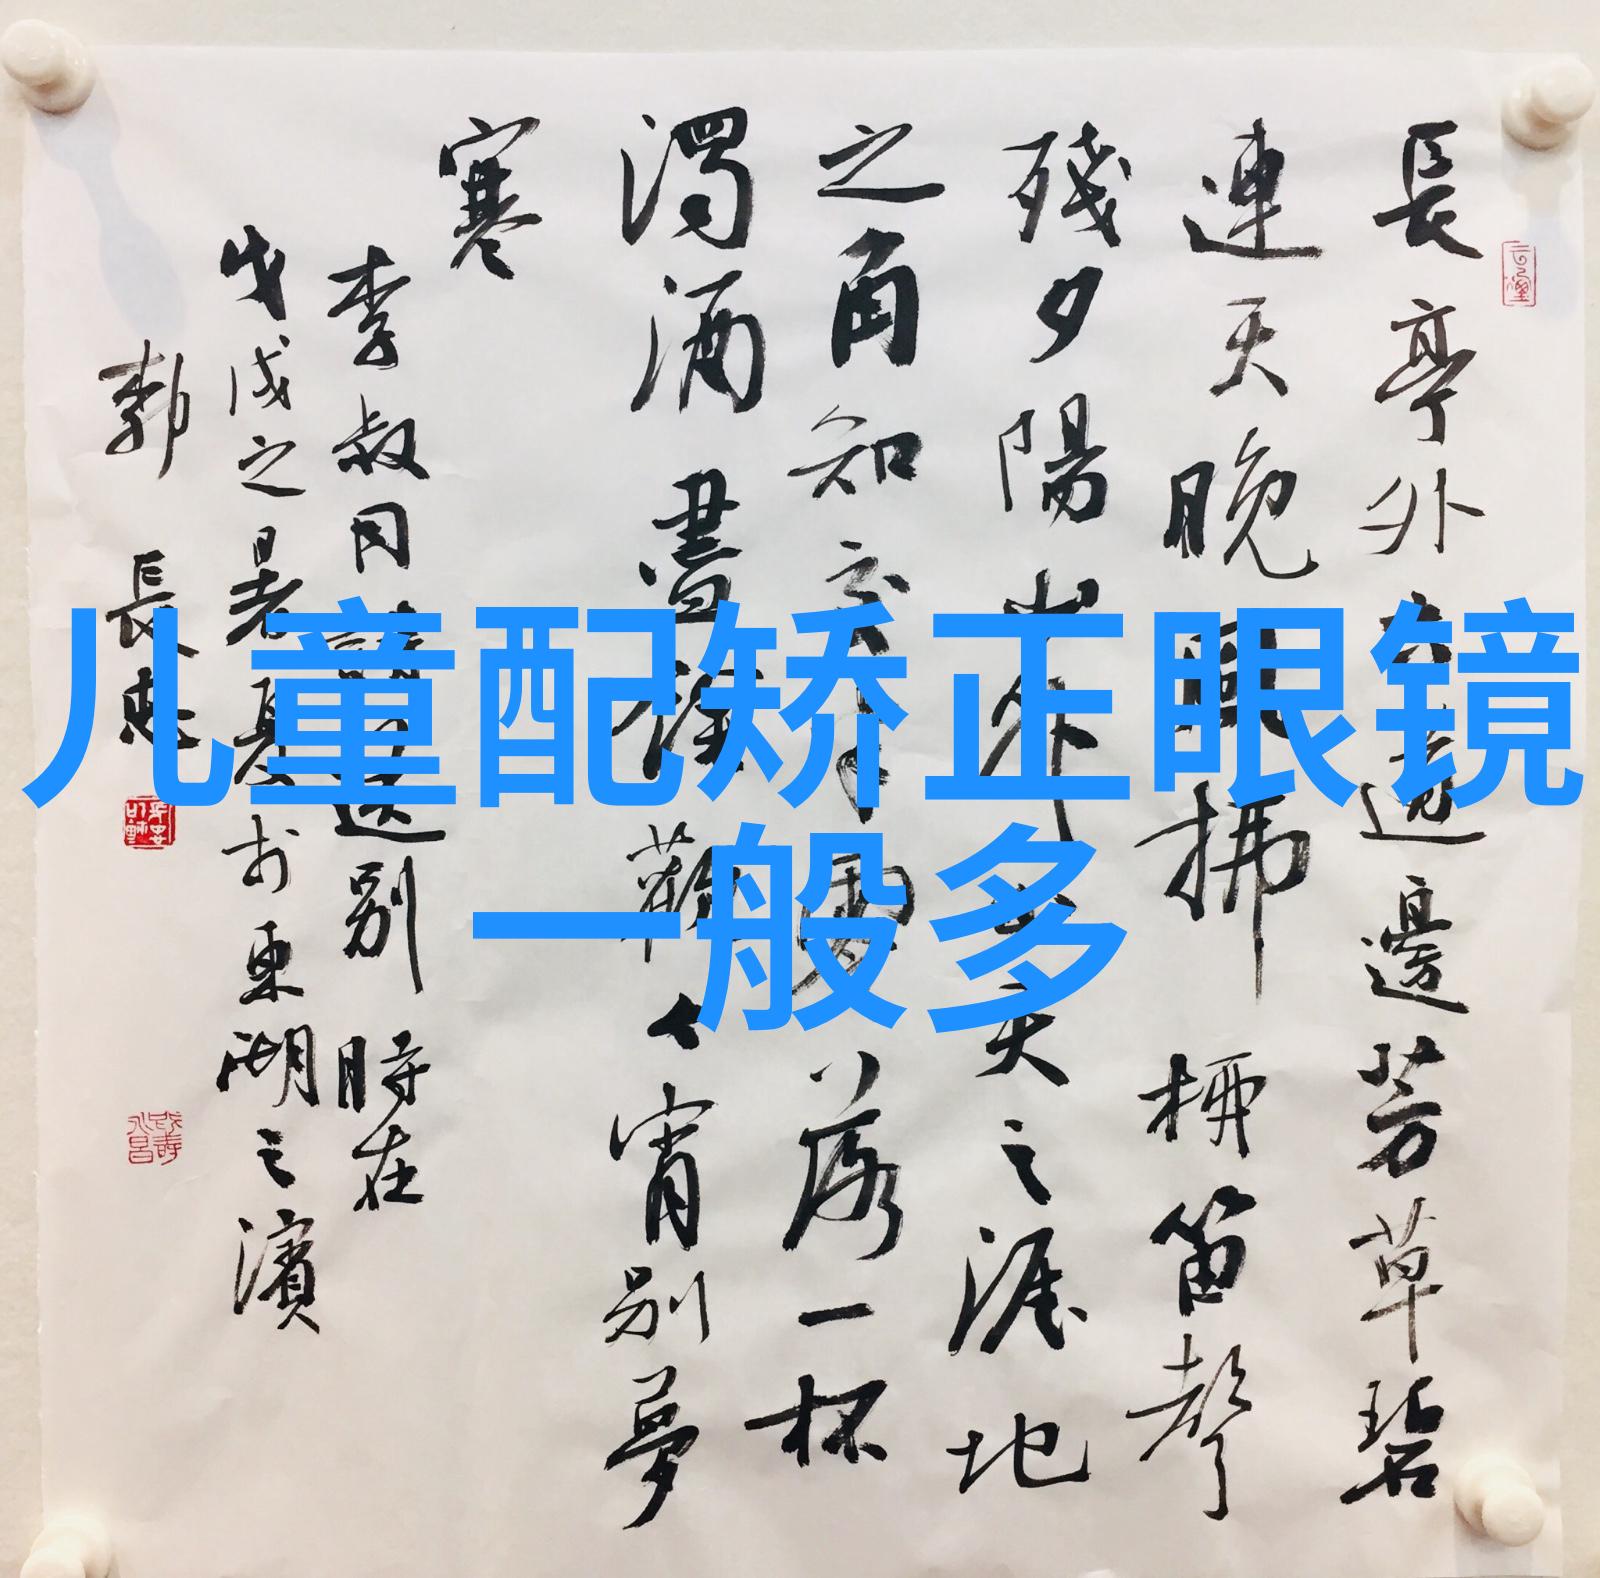 長亭外古道邊芳草碧
連天晚風拂柳笛聲
殘夕陽山外山天之涯地
之角知交半零落一杯
濁酒盡餘歡今宵別夢
寒
李叔同詞送別 時在
戊戌之暑夏於東湖之濱
郭長忠
儿童配矫正眼镜
一般多